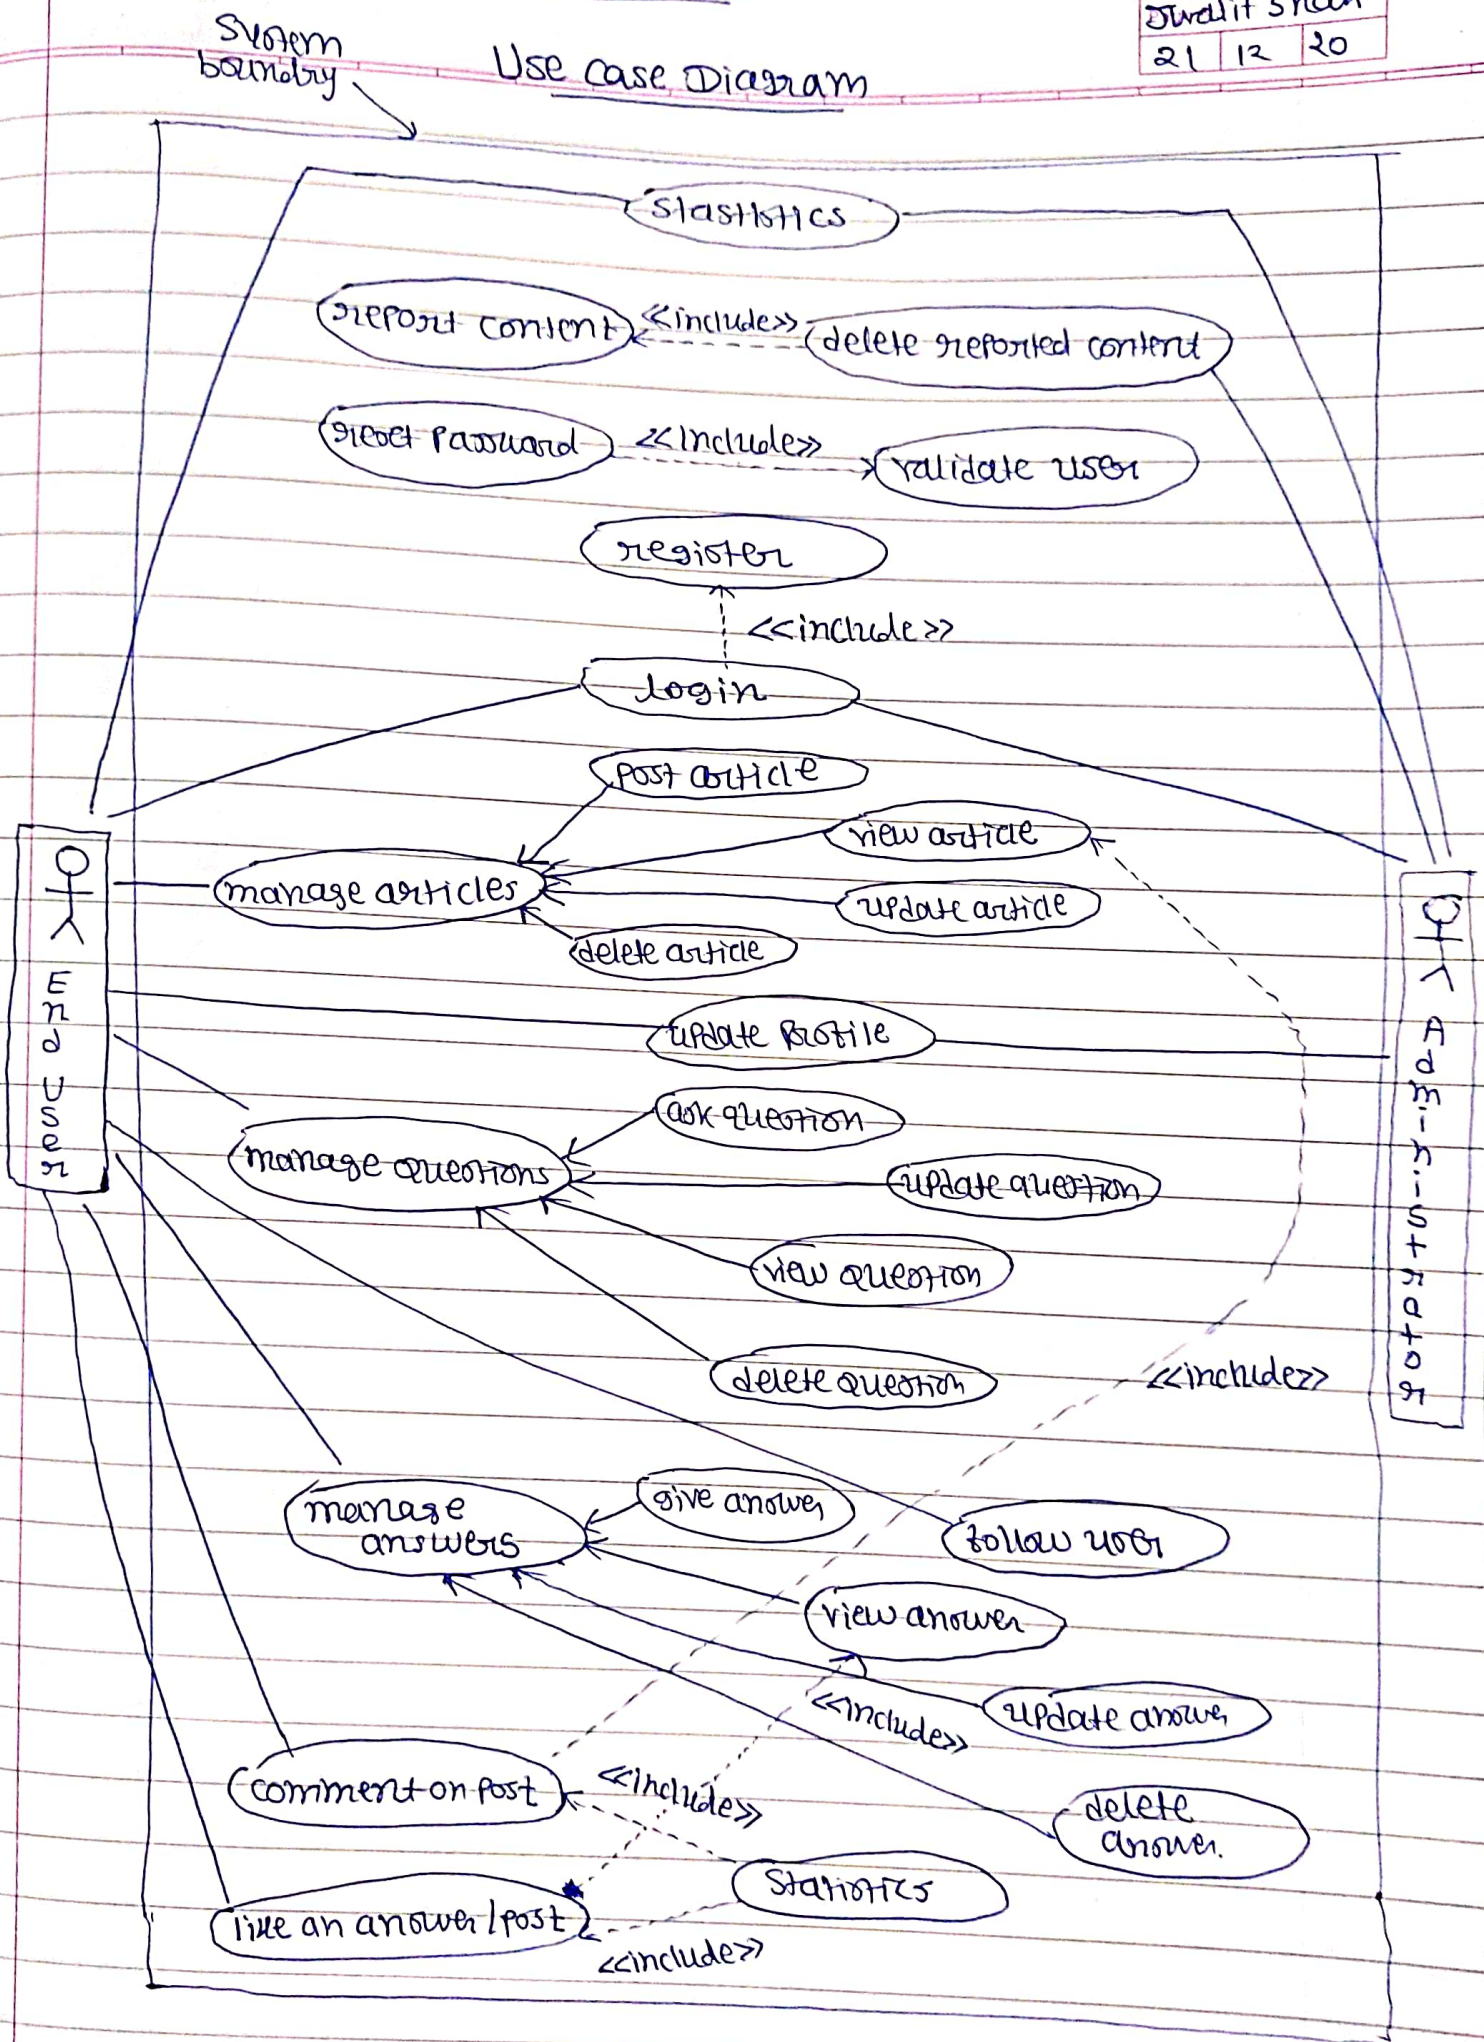 System
boundry
Use case Diagram
21 12 20
stastistics
report content
<<include>>
delete reported content
reset Password
<<include>>
validate user
register
<<include>>
login
post article
view article
manage articles
update article
delete article
End User
Administrator
update profile
ask question
manage questions
update question
view question
delete question
<<include>>
manage
answers
give answer
follow user
view answer
<<include>>
update answer
comment on post
<<include>>
delete
answer.
Statistics
like an answer / post
<<include>>